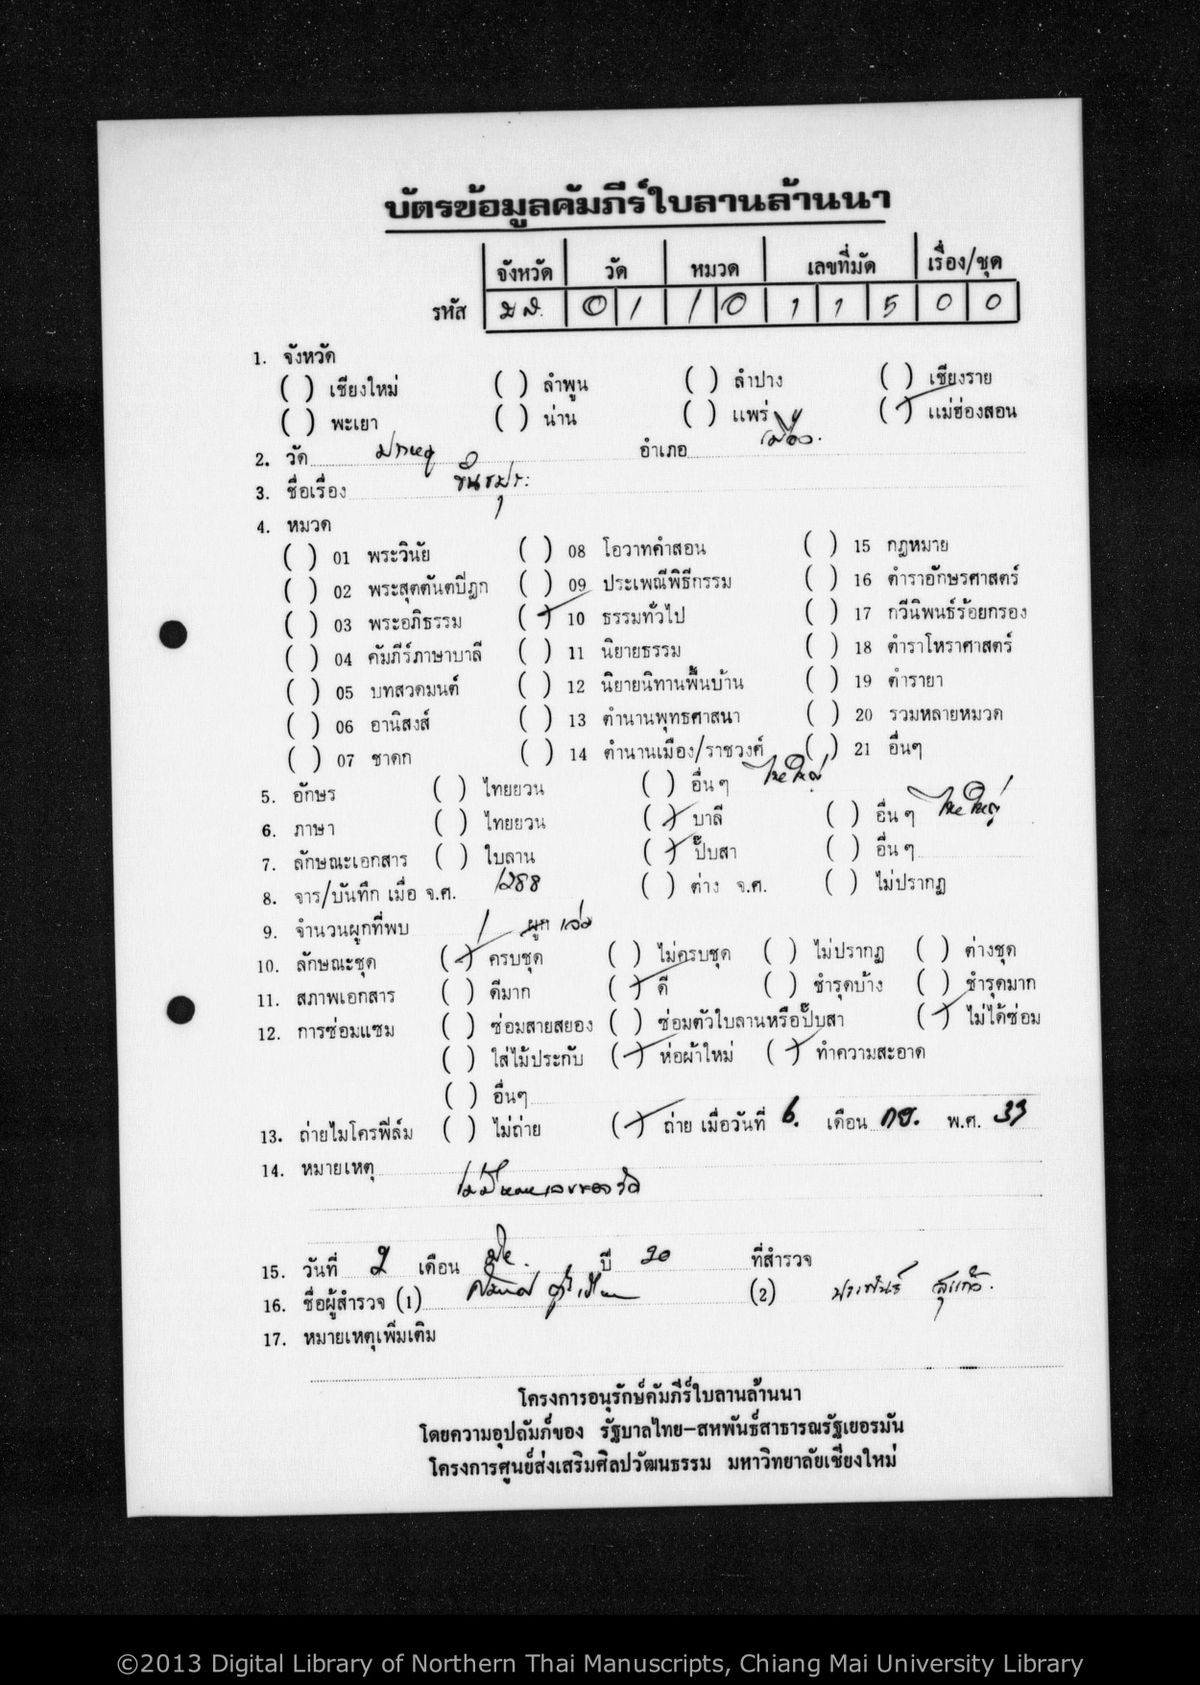 บัตรข้อมูลคัมภีร์ใบลานล้านนา
จังหวัด วัด หมวด เลขที่มัด เรื่อง/ชุด
รหัส มส. 0 1 1 0 1 1 5 0 0
1. จังหวัด
( ) เชียงใหม่ ( ) ลำพูน ( ) ลำปาง ( ) เชียงราย
( ) พะเยา ( ) น่าน ( ) แพร่ (/) แม่ฮ่องสอน
2. วัด อำเภอ เมือง.
3. ชื่อเรื่อง
4. หมวด
( ) 01 พระวินัย ( ) 08 โอวาทคำสอน ( ) 15 กฎหมาย
( ) 02 พระสุตตันตปิฎก ( ) 09 ประเพณีพิธีกรรม ( ) 16 ตำราอักษรศาสตร์
( ) 03 พระอภิธรรม (/) 10 ธรรมทั่วไป ( ) 17 กวีนิพนธ์ร้อยกรอง
( ) 04 คัมภีร์ภาษาบาลี ( ) 11 นิยายธรรม ( ) 18 ตำราโหราศาสตร์
( ) 05 บทสวดมนต์ ( ) 12 นิยายนิทานพื้นบ้าน ( ) 19 ตำรายา
( ) 06 อานิสงส์ ( ) 13 ตำนานพุทธศาสนา ( ) 20 รวมหลายหมวด
( ) 07 ชาดก ( ) 14 ตำนานเมือง/ราชวงศ์ ( ) 21 อื่นๆ
5. อักษร ( ) ไทยยวน ( ) อื่น ๆ ไทใหญ่
6. ภาษา ( ) ไทยยวน (/) บาลี ( ) อื่น ๆ ไทใหญ่
7. ลักษณะเอกสาร ( ) ใบลาน (/) ปั๊บสา ( ) อื่น ๆ
8. จาร/บันทึก เมื่อ จ.ศ. 1288 ( ) ต่าง จ.ศ. ( ) ไม่ปรากฏ
9. จำนวนผูกที่พบ 1 ผูก เล่ม
10. ลักษณะชุด (/) ครบชุด ( ) ไม่ครบชุด ( ) ไม่ปรากฏ ( ) ต่างชุด
11. สภาพเอกสาร ( ) ดีมาก (/) ดี ( ) ชำรุดบ้าง ( ) ชำรุดมาก
12. การซ่อมแซม ( ) ซ่อมสายสยอง ( ) ซ่อมตัวใบลานหรือปั๊บสา (/) ไม่ได้ซ่อม
( ) ใส่ไม้ประกับ (/) ห่อผ้าใหม่ (/) ทำความสะอาด
( ) อื่นๆ
13. ถ่ายไมโครฟิล์ม ( ) ไม่ถ่าย (/) ถ่าย เมื่อวันที่ 6. เดือน กย. พ.ศ. 33
14. หมายเหตุ
ไม่มีหมายเลขของวัด
15. วันที่ 2 เดือน ปี 30 ที่สำรวจ
16. ชื่อผู้สำรวจ (1) (2) สุแก้ว.
17. หมายเหตุเพิ่มเติม
โครงการอนุรักษ์คัมภีร์ใบลานล้านนา
โดยความอุปถัมภ์ของ รัฐบาลไทย–สหพันธ์สาธารณรัฐเยอรมัน
โครงการศูนย์ส่งเสริมศิลปวัฒนธรรม มหาวิทยาลัยเชียงใหม่
©2013 Digital Library of Northern Thai Manuscripts, Chiang Mai University Library